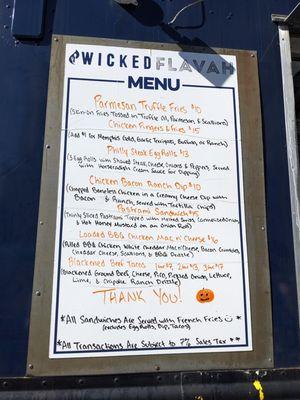 WICKED FLAVAH
MENU
Parmesan Truffle Fries $10
(Season Fries Tossed in Truffle Oil, Parmesan & Scallions)
Chicken Fingers & Fries $15
(Add $1 for Memphis, Gold, Garlic Teriyaki, Buffalo, or Ranch)
Philly Steak Egg Rolls $13
(3 Egg Rolls with Shaved Steak, Cheese, Onions & Peppers, Served
with Horseradish Cream Sauce for Dipping)
Chicken Bacon Ranch Dip $10
(Chopped Boneless Chicken in a Creamy Cheese Dip with
Bacon & Ranch, Served with Tortilla Chips)
Pastrami Sandwich $15
(Thinly Sliced Pastrami Topped with Melted Swiss, Caramelized Onion
& Hot Honey Mustard on an Onion Roll)
Loaded BBQ Chicken Mac n' Cheese $16
(Pulled BBQ Chicken, White Cheddar Mac n' Cheese, Bacon Crumbles,
Cheddar Cheese, Scallions, & BBQ Drizzle)
Blackened Beef Tacos 1 for $7, 2 for $13, 3 for $17
(Blackened Ground Beef, Cheese, Pico, Pickled Onion, Lettuce,
Lime, & Chipotle Ranch Drizzle)
THANK YOU!
*All Sandwiches Are Served with French Fries
(excludes Egg Rolls, Dip, Tacos)
*All Transactions Are Subject to 7% Sales Tax **